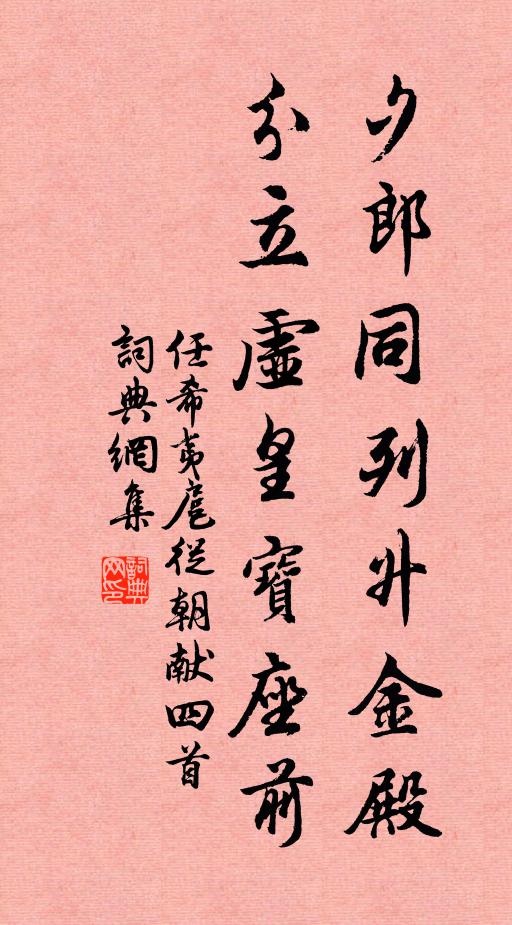 夕郎同列升金殿
分立虛皇寶座前
任希夷扈從朝献四首
詞典網集
詞典网印